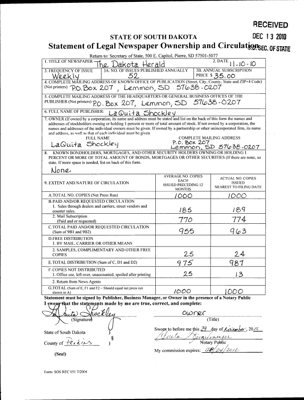 RECEIVED
DEC 13 2010
S.D. SEC. OF STATE
STATE OF SOUTH DAKOTA
Statement of Legal Newspaper Ownership and Circulation
Return to: Secretary of State, 500 E. Capitol, Pierre, SD 57501-5077
1. TITLE OF NEWSPAPER The Dakota Herald
2. DATE 11-10-10
3. FREQUENCY OF ISSUE Weekly
3A. NO. OF ISSUES PUBLISHED ANNUALLY 52
3B. ANNUAL SUBSCRIPTION PRICE $35.00
4. COMPLETE MAILING ADDRESS OF KNOWN OFFICE OF PUBLICATION (Street, City, County, State and ZIP+4 Code)
(Not printers) P.O. Box 207, Lemmon, SD 57638-0207
5. COMPLETE MAILING ADDRESS OF THE HEADQUARTERS OR GENERAL BUSINESS OFFICES OF THE
PUBLISHER (Not printers) P.O. Box 207, Lemmon, SD 57638-0207
6. FULL NAME OF PUBLISHER:
LaQuita Shockley
7. OWNER (If owned by a corporation, its name and address must be stated and list on the back of this form the names and
addresses of stockholders owning or holding 1 percent or more of total amount of stock. If not owned by a corporation, the
names and addresses of the individual owners must be given. If owned by a partnership or other unincorporated firm, its name
and address, as well as that of each individual must be given.
FULL NAME COMPLETE MAILING ADDRESS
LaQuita Shockley P.O. Box 207
Lemmon, SD 57638-0207
8. KNOWN BONDHOLDERS, MORTGAGES, AND OTHER SECURITY HOLDERS OWNING OR HOLDING 1
PERCENT OR MORE OF TOTAL AMOUNT OF BONDS, MORTGAGES OR OTHER SECURITIES (If there are none, so
state. If more space is needed, list on back of this form.
None
9. EXTENT AND NATURE OF CIRCULATION
AVERAGE NO. COPIES EACH ISSUED PRECEDING 12 MONTHS
ACTUAL NO. COPIES ISSUED NEAREST TO FILING DATE
A. TOTAL NO. COPIES (Net Press Run) 1000 1000
B. PAID AND/OR REQUESTED CIRCULATION
1. Sales through dealers and carriers, street vendors and
counter sales. 185 189
2. Mail Subscription
(Paid and or requested) 770 774
C. TOTAL PAID AND/OR REQUESTED CIRCULATION
(Sum of 9B1 and 9B2) 955 963
D. FREE DISTRIBUTION
1. BY MAIL, CARRIER OR OTHER MEANS
2. SAMPLES, COMPLIMENTARY AND OTHER FREE
COPIES 25 24
E. TOTAL DISTRIBUTION (Sum of C, D1 and D2) 975 987
F. COPIES NOT DISTRIBUTED
1. Office use, left over, unaccounted, spoiled after printing 25 13
2. Return from News Agents
G. TOTAL (Sum of E, F1 and F2 - Should equal net press run
shown in A) 1000 1000
Statement must be signed by Publisher, Business Manager, or Owner in the presence of a Notary Public
I swear that the statements made by me are true, correct, and complete:
LaQuita Shockley owner
(Signature) (Title)
State of South Dakota
County of Perkins
(Seal)
Sworn to before me this 29 day of November, 2010
Notary Public
My commission expires:
Form: SOS REC 035 7/2004